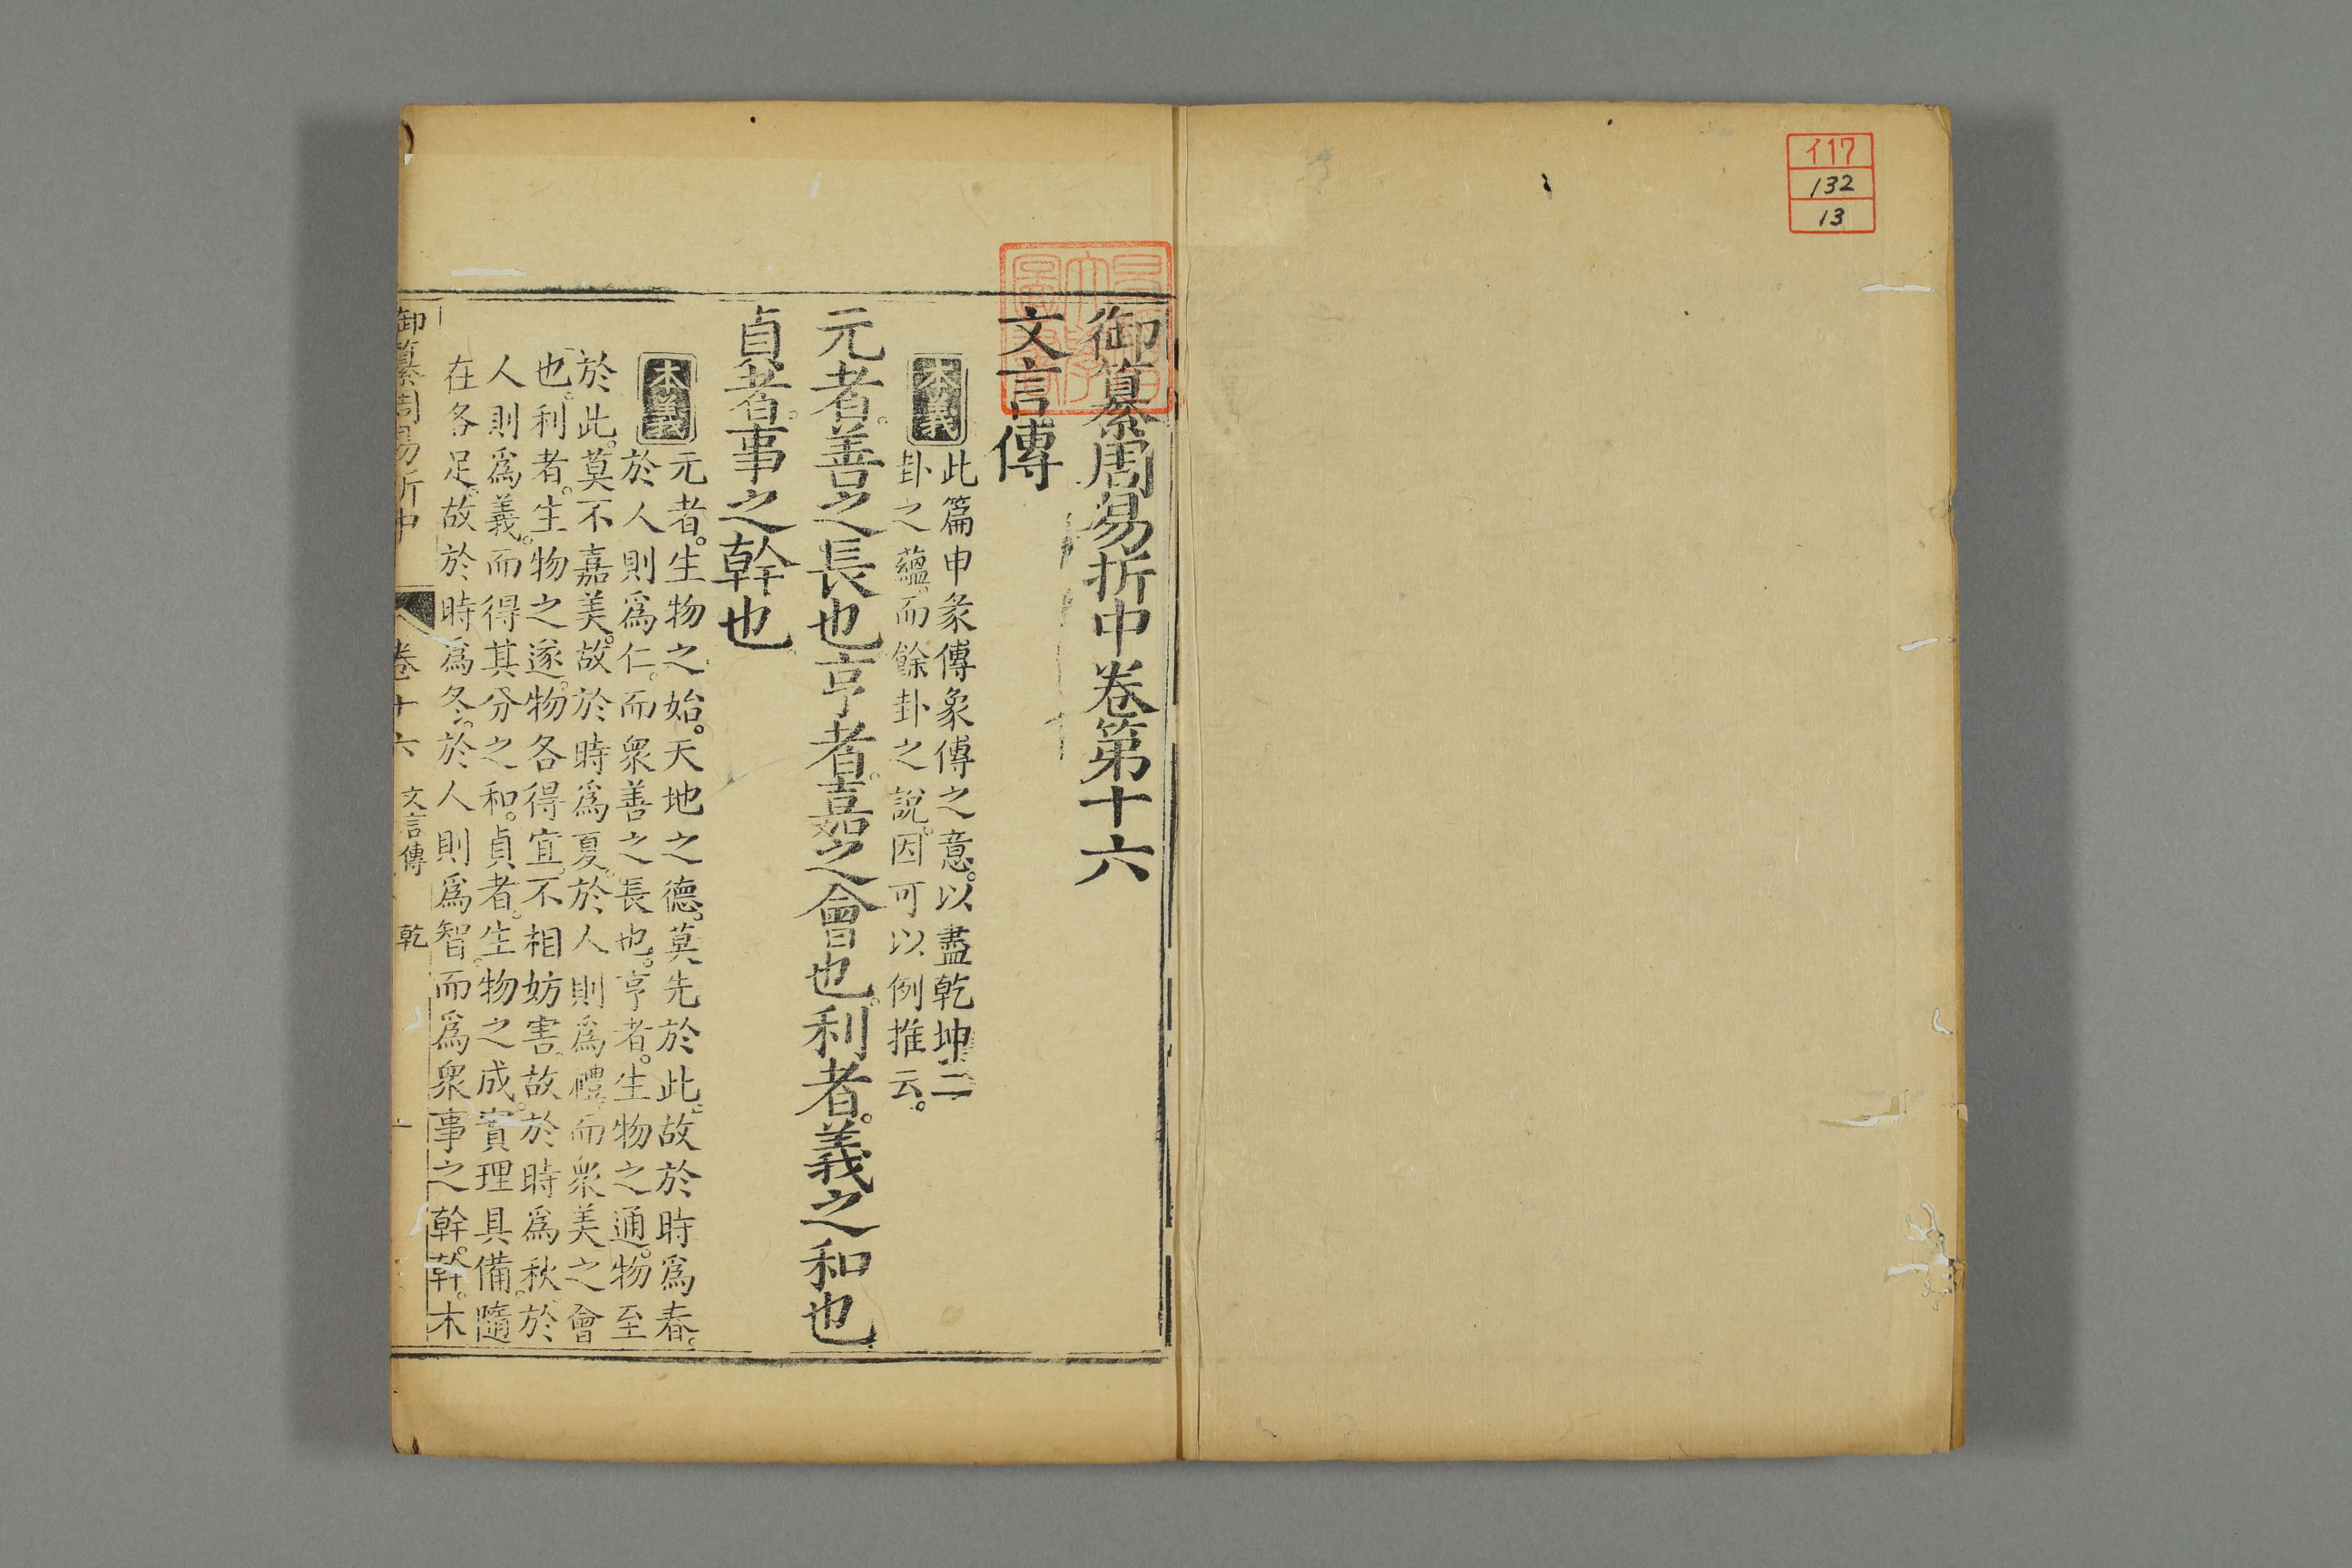 イ17
132
13
御纂周易折中卷第十六
文言傳
本義
此篇申彖傳象傳之意。以盡乾坤二
卦之蘊。而餘卦之說。因可以例推云。
元者。善之長也。亨者。嘉之會也。利者。義之和也。
貞者。事之幹也。
本義
元者。生物之始。天地之德。莫先於此。故於時爲春。
於人則爲仁。而眾善之長也。亨者。生物之通。物至
於此。莫不嘉美。故於時爲夏。於人則爲禮。而眾美之會
也。利者。生物之遂。物各得宜。不相妨害。故於時爲秋。於
人則爲義。而得其分之和。貞者。生物之成。實理具備。隨
在各足。故於時爲冬。於人則爲智。而爲眾事之幹。幹。木
御纂周易折中 卷十六 文言傳 乾 一